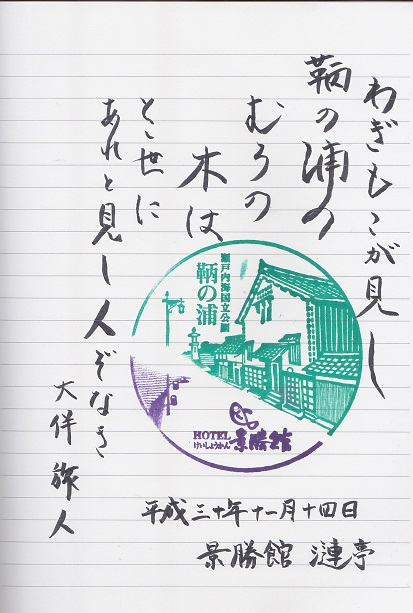 わぎもこが見し
鞆の浦の
むろの
木は
とこ世に
あれど見し人ぞなき
大伴 旅人
瀬戸内海国立公園
鞆の浦
HOTEL
けいしょうかん
景勝館
平成三十年十一月十四日
景勝館 漣亭